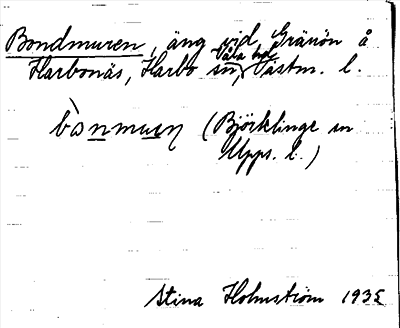 Bondmuren, äng vid Gränön å
Våla hd
Harbonäs, Harbo sn, Västm. l.
bònmuꞃꞃ (Björklinge sn
Upps. l.)
Stina Holmström 1935